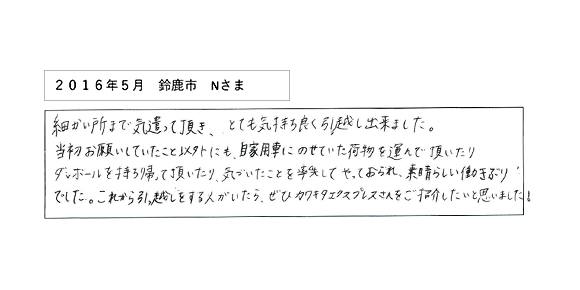 ２０１６年５月　鈴鹿市　Nさま
細かい所まで気遣って頂き、とても気持ち良く引越し出来ました。
当初お願いしていたこと以外にも、自家用車にのせていた荷物を運んで頂いたり
ダンボールを持ち帰って頂いたり、気づいたことを率先してやっておられ、素晴らしい働きぶり
でした。これから引っ越しをする人がいたら、ぜひカワキタエクスプレスさんをご紹介したいと思いました！